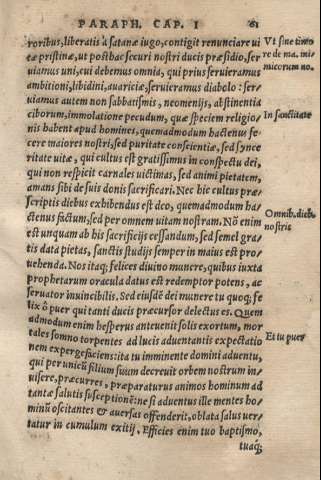 PARAPH. CAP. I 61
roribus, liberatis à satanæ iugo, contigit renunciare ui
tæ pristinæ, ut posthac securi nostri ducis præsidio, ser
uiamus uni, cui debemus omnia, qui prius seruieramus
ambitioni, libidini, auariciæ, seruieramus diabolo: ser
uiamus autem non sabbatismis, neomenijs, abstinentia
ciborum, immolatione pecudum, quæ speciem religio
nis habent apud homines, quemadmodum hactenus fe
cere maiores nostri, sed puritate conscientiæ, sed synce
ritate uitæ, qui cultus est gratissimus in conspectu dei,
qui non respicit carnales uictimas, sed animi pietatem,
amans sibi de suis donis sacrificari. Nec hic cultus præ
scriptis diebus exhibendus est deo, quemadmodum ha
ctenus factum, sed per omnem uitam nostram. Nō enim
est unquam ab his sacrificijs cessandum, sed semel gra
tis data pietas, sanctis studijs semper in maius est pro
uehenda. Nos itaq; felices diuino munere, quibus iuxta
prophetarum oracula datus est redemptor potens, ac
seruator inuincibilis. Sed eiusdē dei munere tu quoq; fe
lix ô puer qui tanti ducis præcursor delectus es. Quem
admodum enim hesperus anteuenit solis exortum, mor
tales somno torpentes ad lucis aduentantis expectatio
nem expergefaciens: ita tu imminente domini aduentu,
qui per unicū filium suum decreuit orbem nostrum in-
uisere, præcurres, præparaturus animos hominum ad
tantæ salutis susceptionē: ne si aduentus ille mentes ho
minū oscitantes & auersas offenderit, oblata salus uer-
tatur in cumulum exitij. Efficies enim tuo baptismo,
tuaq;
Vt sine timo
re de ma. ini-
micorum no.
In sanctitate
Omnib. dieb.
nostris
Et tu puer